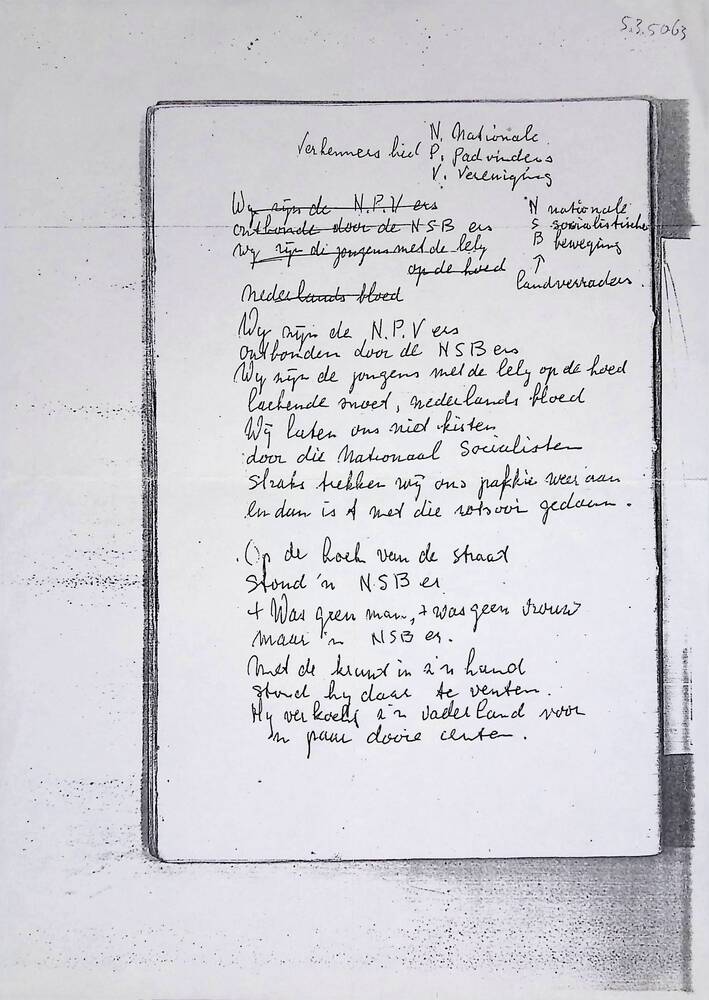 5.3.5063
Verkenners lied
N. Nationale
P. Padvinders
V. Vereniging
Wy zijn de N.P.V ers
ontbonde door de NSB ers
wy zijn de jongens met de lely
op de hoed
nederlands bloed
N nationale
S socialistische
B beweging
↑
landverraders.
Wy zijn de N.P.V ers
ontbonden door de NSB ers
Wy zijn de jongens met de lely op de hoed
lachende snoet, nederlands bloed
Wij laten ons niet kisten
door die Nationaal Socialisten
Straks trekken wij ons pakkie weer aan
en dan is t met die rotsooi gedaan.
Op de hoek van de straat
Stond 'n NSB er
t Was geen man, t was geen vrouw
maar 'n NSB er.
Met de krant in z'n hand
stond hy daar te venten.
Hy verkocht z'n vaderland voor
'n paar dooie centen.